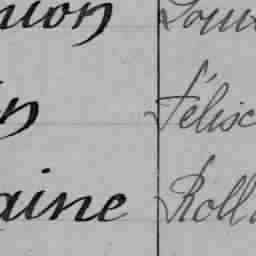 nion Loui
in Félix
aine Roll